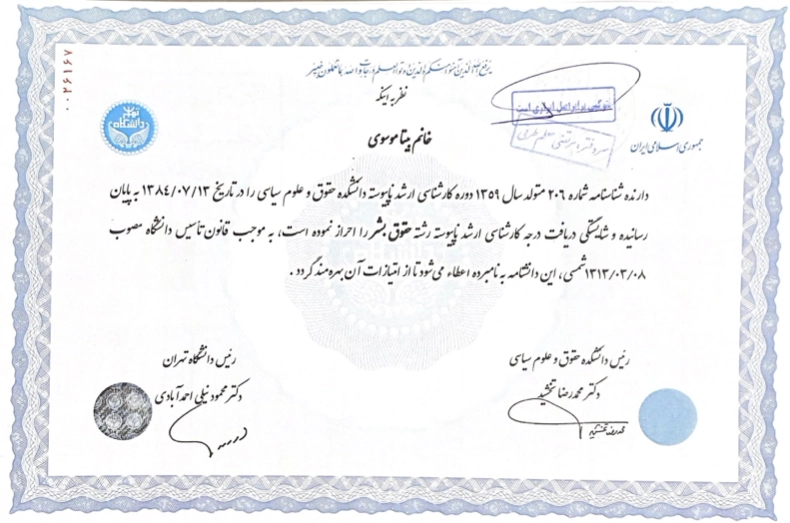 یرفع الله الذین آمنوا منکم والذین اوتوا العلم درجات والله بما تعملون خبیر
نظر به اینکه
۰۰۲۶۱۶۷
دانشگاه تهران
جمهوری اسلامی ایران
خانم بیتا موسوی
دارنده شناسنامه شماره ۲۰۶ متولد سال ۱۳۵۹ دوره کارشناسی ارشد ناپیوسته دانشکده حقوق و علوم سیاسی را در تاریخ ۱۳۸۴/۰۷/۱۳ به پایان
رسانیده و شایستگی دریافت درجه کارشناسی ارشد ناپیوسته رشته حقوق بشر را احراز نموده است، به موجب قانون تأسیس دانشگاه مصوب
۱۳۱۳/۰۳/۰۸ شمسی، این دانشنامه به نامبرده اعطاء می‌شود تا از امتیازات آن بهره‌مند گردد.
رئیس دانشکده حقوق و علوم سیاسی
دکتر محمدرضا تخشید
رئیس دانشگاه تهران
دکتر محمود نیلی احمدآبادی